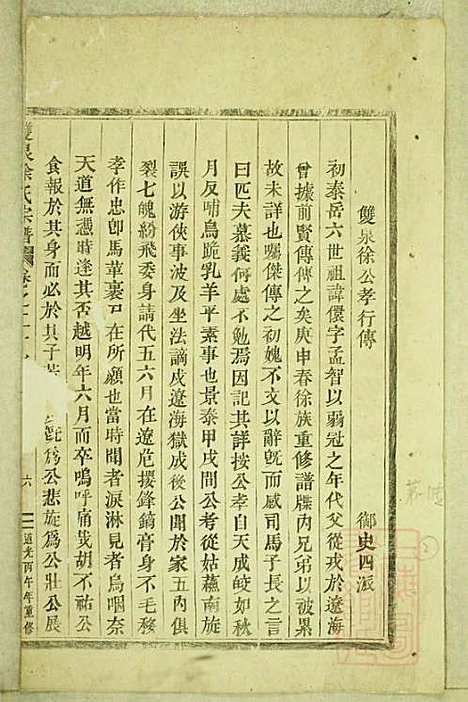 雙泉徐公孝行傳
御史四派
初泰岳六世祖諱儇字孟智以弱冠之年代父從戎於遼海
曾據前賢傳傳之矣庚申春徐族重修譜牒內兄弟以被累
故未詳也予囑傑傳之初媿不文以辭旣而感司馬子長之言
曰匹夫慕義何處不勉焉因記其詳按公孝自天成皎如秋
月反哺烏跪乳羊平素事也景泰甲戌間公考從姑蘓南旋
誤以游俠事波及坐法謫戍遼海獄成後公聞於家五內俱
裂七魄紛飛委身請代五六月在遼危援鋒鏑膏身不毛移
孝作忠卽馬革裹尸在所願也當時聞者淚淋見者烏咽奈
天道無憑時逢其否越明年六月而卒嗚呼痛哉胡不祐公
食報於其身而必於其子
旣爲公悲旋爲公壯公展
雙泉徐氏宗譜
六
道光丙午年重修